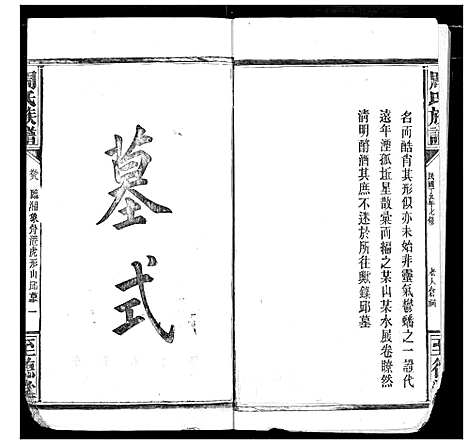 周氏族譜
民國十五年七修
至德堂
名而酷肖其形似亦未始非靈氣鬱蟠之一證代
遠年湮孤坵星散彙而編之某山某水展卷瞭然
清明酹酒其庶不迷於所往歟錄邱墓
墓式
周氏族譜
臨湘象骨港虎形山邱墓 一
至德堂